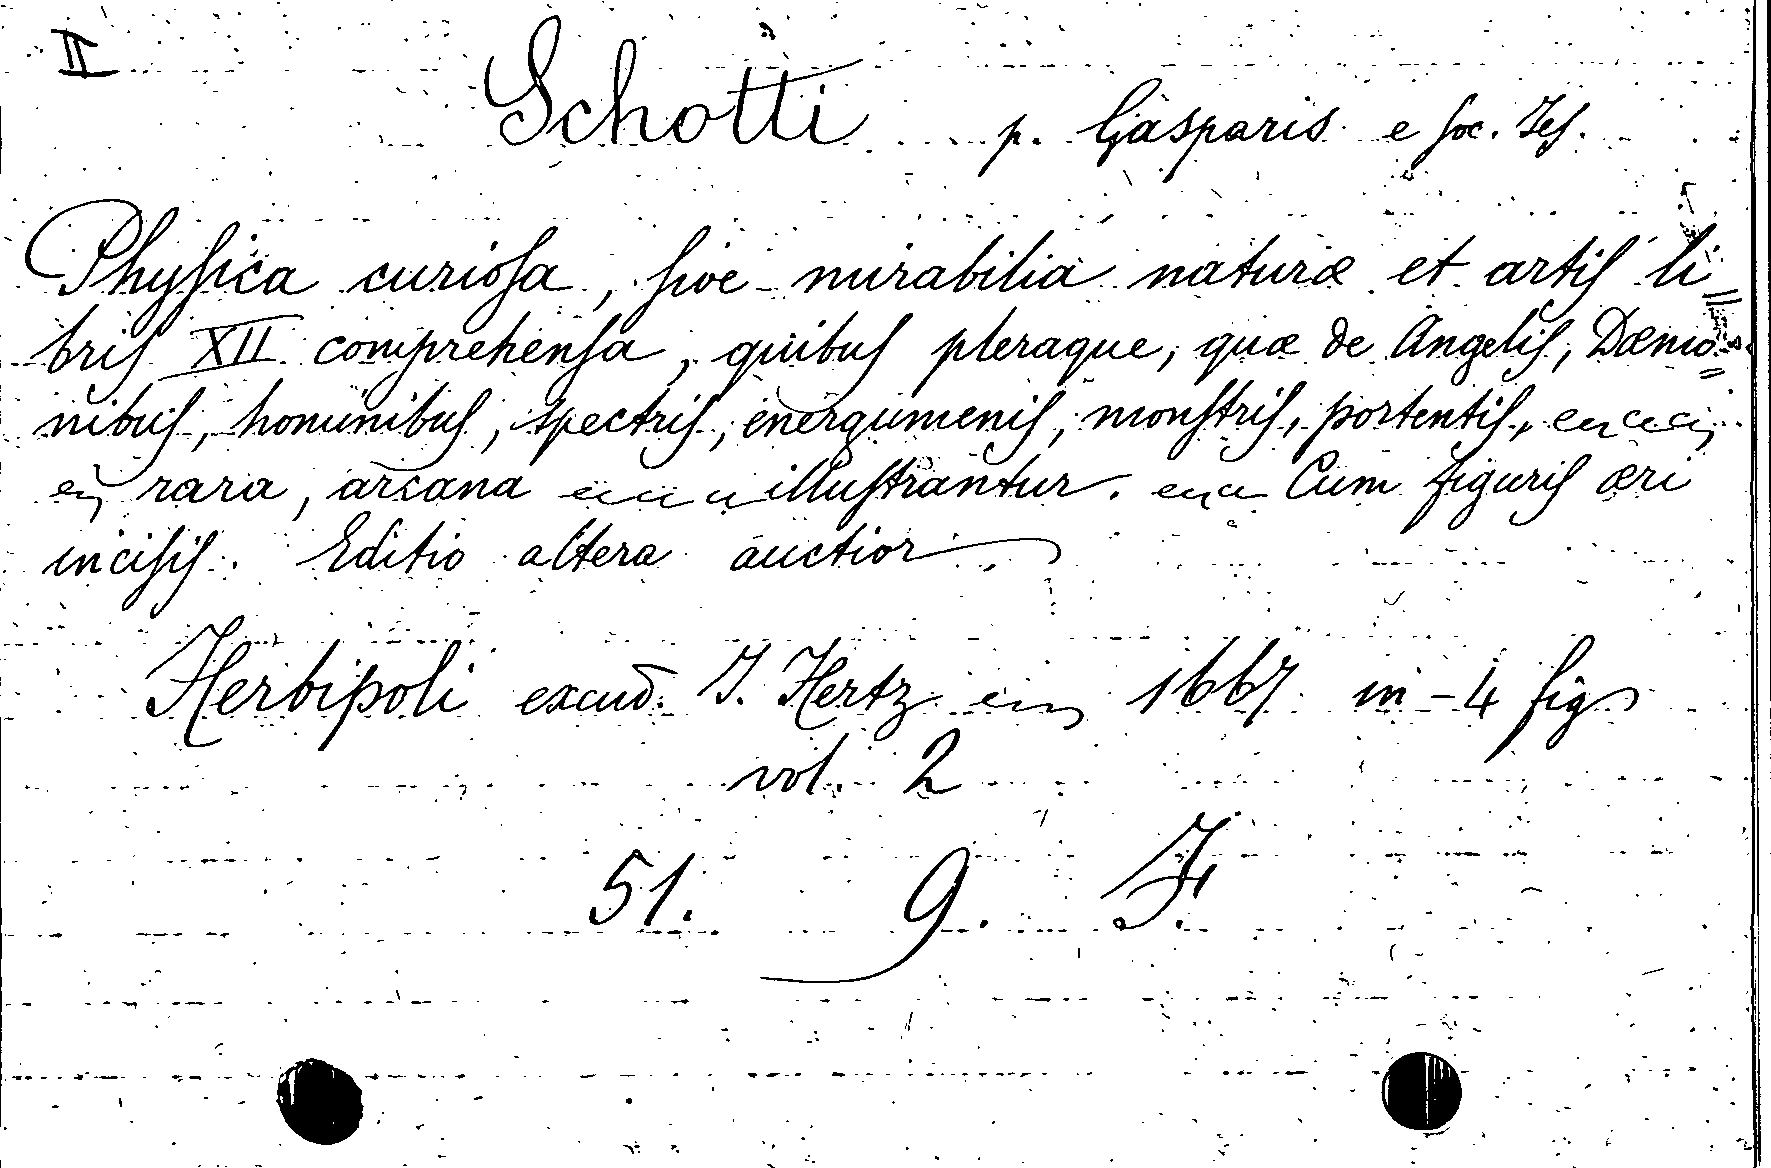 II
Schotti p. Gasparis e Soc. Jeſ.
Phyſica curioſa, ſive mirabilia naturæ et artiſ li
briſ XII comprehenſa, quibuſ pleraque, quæ de Angeliſ, Dæmo=
nibuſ, hominibuſ, spectriſ, energumeniſ, monſtriſ, portentiſ,
rara, arcana illuſtrantur. Cum figuriſ æri
inciſiſ. Editio altera auctior
Herbipoli excud. J. Hertz 1667 in-4 fig
vol. 2
51. 9. F.